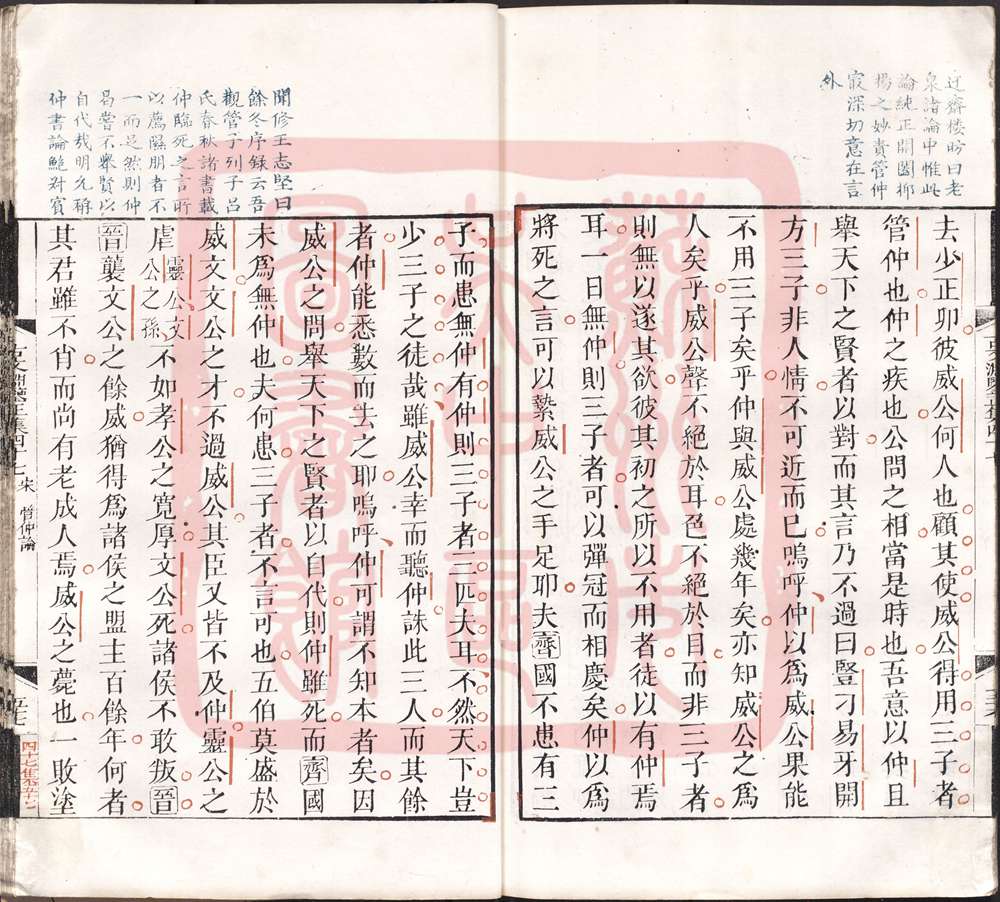 迂齋楼昉曰老
泉諸論中惟此
論純正開闔抑
揚之妙責管仲
㝡深切意在言
外
去少正卯彼威公何人也顧其使威公得用三子者
管仲也仲之疾也公問之相當是時也吾意以仲且
舉天下之賢者以對而其言乃不過曰豎刁易牙開
方三子非人情不可近而已嗚呼仲以爲威公果能
不用三子矣乎仲與威公處幾年矣亦知威公之爲
人矣乎威公聲不絕於耳色不絕於目而非三子者
則無以遂其欲彼其初之所以不用者徒以有仲焉
耳一日無仲則三子者可以彈冠而相慶矣仲以爲
將死之言可以縶威公之手足耶夫齊國不患有三
聞修王志堅曰
餘冬序録云吾
觀管子列子吕
氏春秋諸書載
仲臨死之言所
以薦隰朋者不
一而足然則仲
曷嘗不舉賢以
自代哉明允稱
仲書論鮑叔賓
子而患無仲有仲則三子者三匹夫耳不然天下豈
少三子之徒哉雖威公幸而聽仲誅此三人而其餘
者仲能悉數而去之耶嗚呼仲可謂不知本者矣因
威公之問舉天下之賢者以自代則仲雖死而齊國
未爲無仲也夫何患三子者不言可也五伯莫盛於
威文文公之才不過威公其臣又皆不及仲靈公之
虐靈公文公之孫不如孝公之寬厚文公死諸侯不敢叛晉
晉襲文公之餘威猶得爲諸侯之盟主百餘年何者
其君雖不肖而尚有老成人焉威公之薨也一敗塗
宋 管仲論